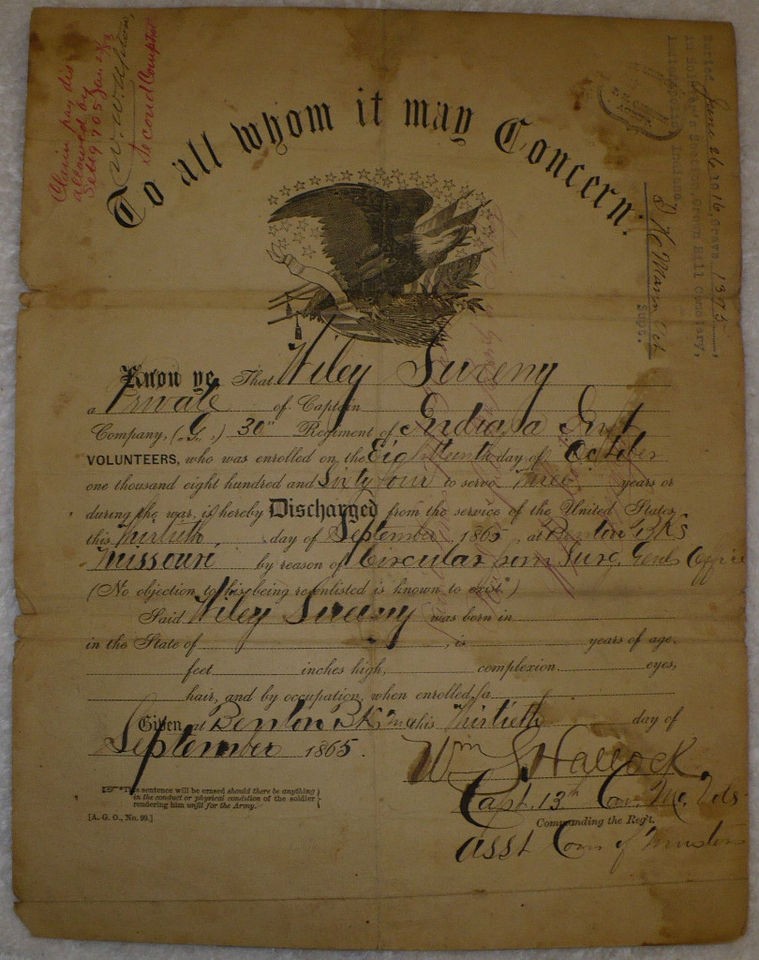 Claim pay dis
allowed by
Sett 9705 Jan
W. W. Upton,
Second Comptro
Buried June 26 2016, Grave 1375,
in Soldier's Section, Crown Hill Cemetery,
Indianapolis, Indiana.
Supt.
To all whom it may Concern:
Know ye, That Wiley Sweeny
a Private of Captain
Company, (G.) 30" Regiment of Indiana Inft
VOLUNTEERS, who was enrolled on the Eighteenth day of October
one thousand eight hundred and Sixty one to serve Three years or
during the war, is hereby Discharged from the service of the United States,
this Thirtieth day of September, 1865, at Benton BKs
Missouri by reason of Circular from Surg. Genls Office
(No objection to his being re-enlisted is known to exist.*)
Said Wiley Sweeny was born in
in the State of , is years of age,
feet inches high, complexion, eyes,
hair, and by occupation, when enrolled, a
Given at Benton BKs Mo this Thirtieth day of
September 1865.
Wm S Hallock
Capt. 13th Cav. Mo. Vols
Commanding the Reg't.
Asst Com of Musters
*This sentence will be erased should there be anything
in the conduct or physical condition of the soldier
rendering him unfit for the Army.
[A. G. O., No. 99.]